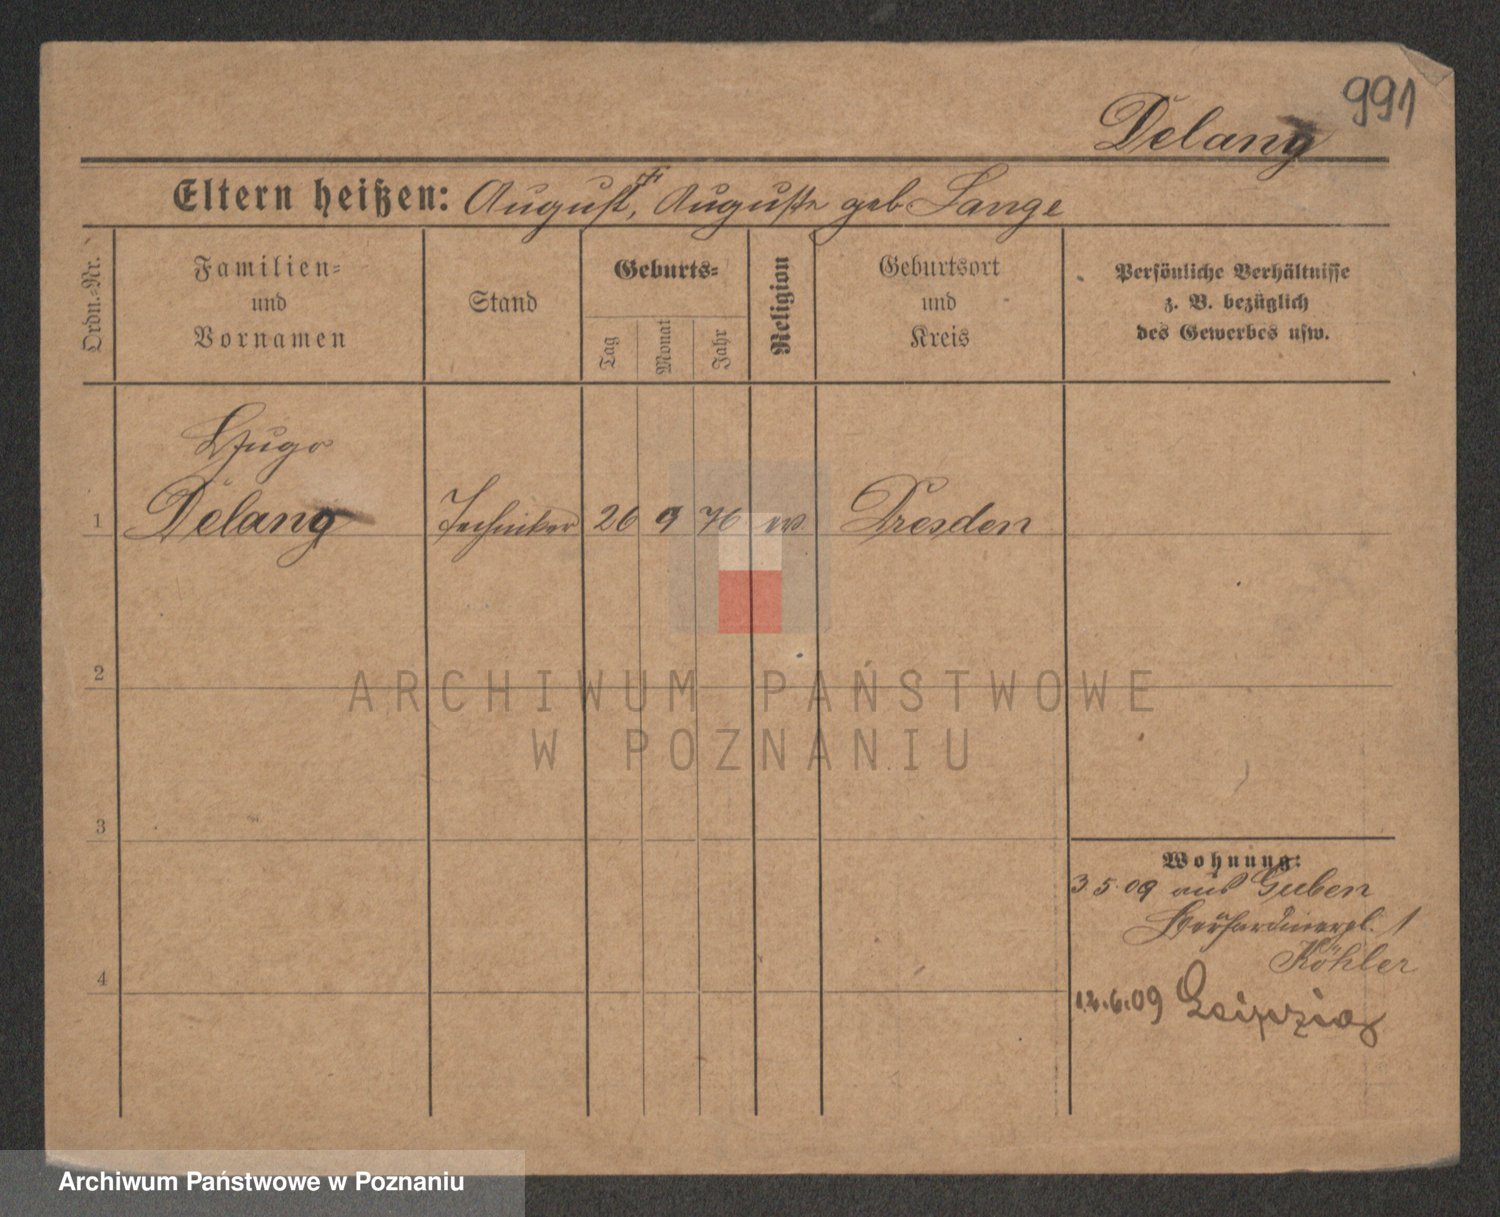 991
Delang
Eltern heißen: August, Auguste geb Lange
Ordn.-Nr.
Familien-
und
Vornamen
Stand
Geburts-
Tag
Monat
Jahr
Religion
Geburtsort
und
Kreis
Persönliche Verhältnisse
z. B. bezüglich
des Gewerbes usw.
Hugo
1 Delang Techniker 26 9 76 Dresden
2
ARCHIWUM PAŃSTWOWE
W POZNANIU
3
Wohnung:
3 5 09 aus Guben
1
Köhler
4
12.6.09 Leipzig
Archiwum Państwowe w Poznaniu